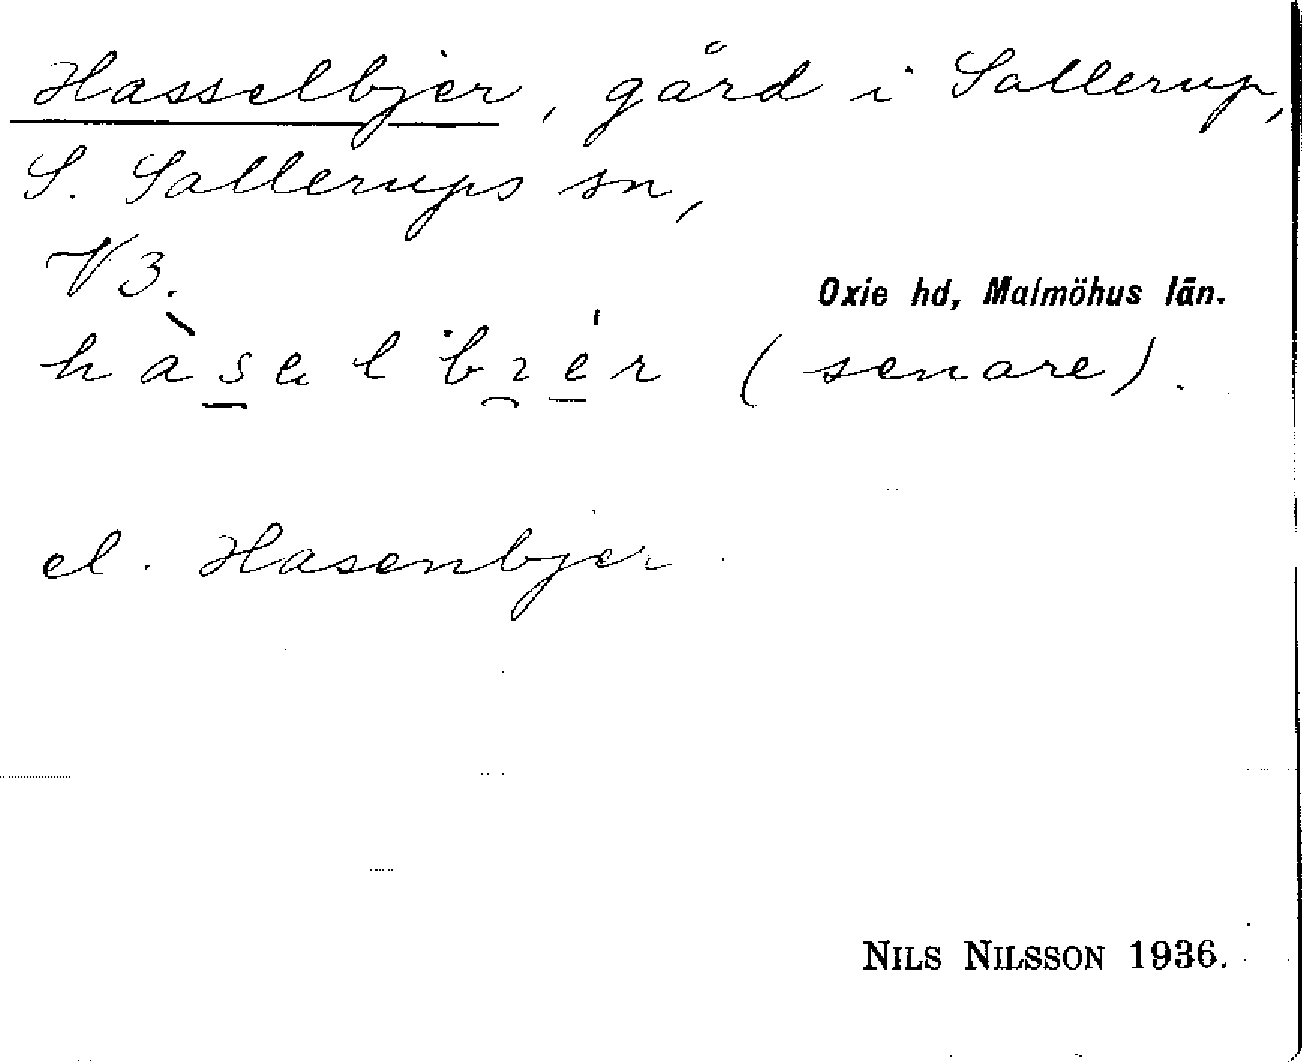 Hasselbjer, gård i Sallerup,
S. Sallerups sn,
V3.
Oxie hd, Malmöhus län.
hàsəlbɪér (senare).
el. Hasenbjer.
NILS NILSSON 1936.